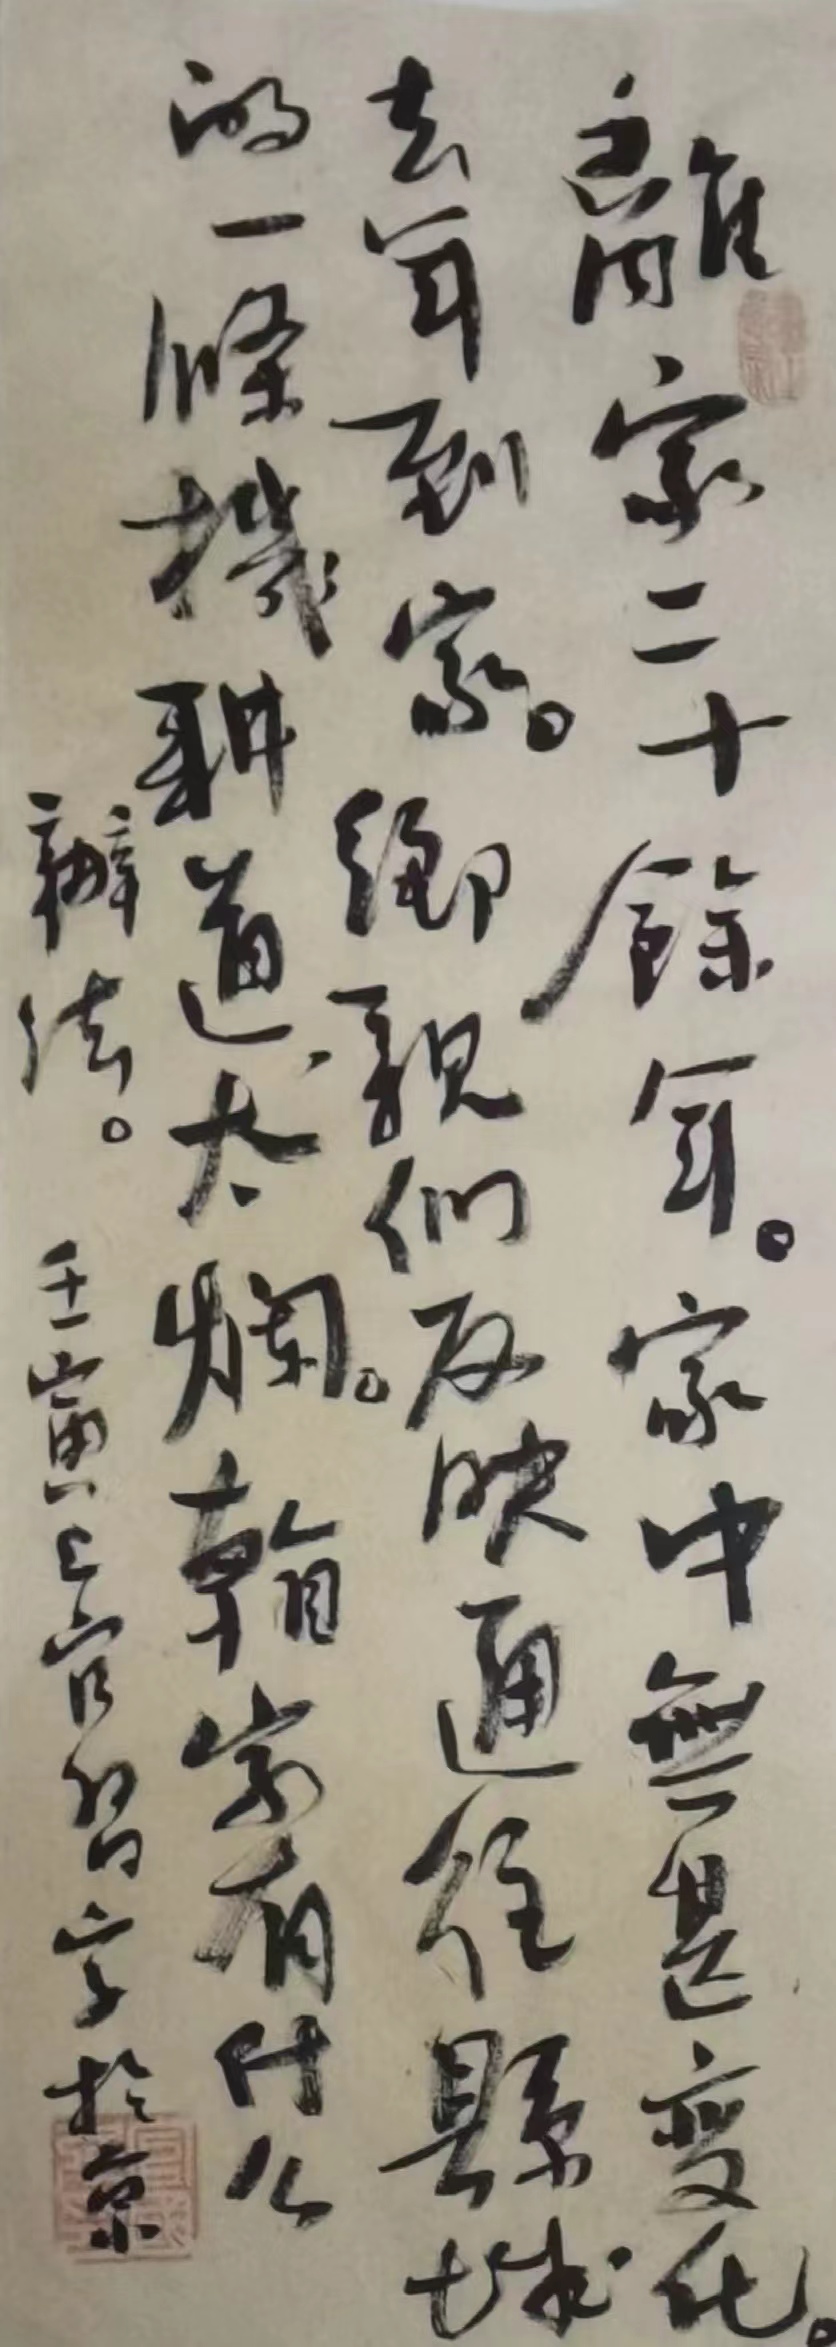 離家二十餘年。家中無甚變化。
去年到家。鄉親們反映通往縣城
的一條機耕道太爛。賴家有什么
辦法。
壬寅上官習字於京